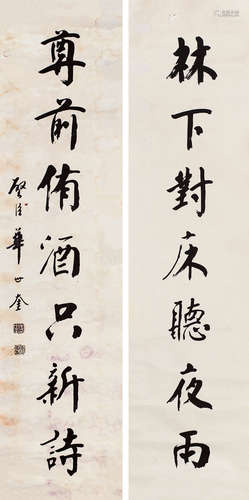 林下對床聽夜雨
尊前侑酒只新詩
華世奎